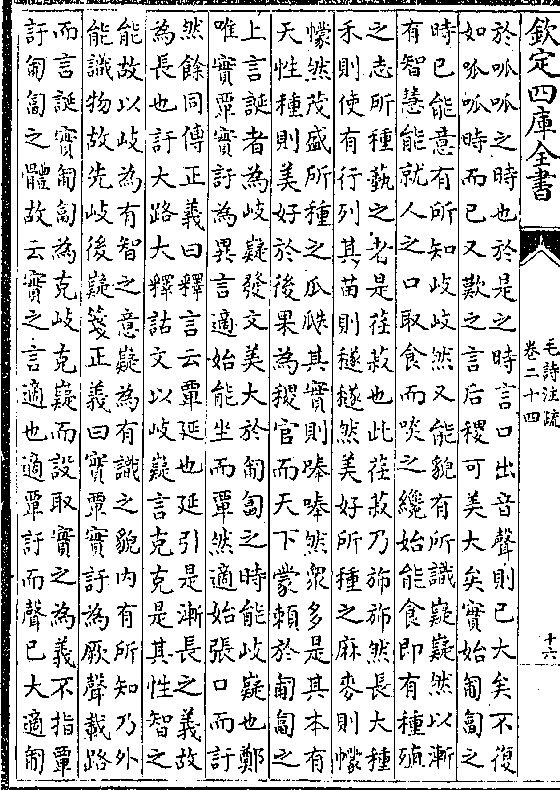 欽定四庫全書
毛詩注疏
卷二十四
十六
於呱呱之時也於是之時言口出音聲則已大矣不復
如呱呱時而已又歎之言后稷可美大矣實始匍匐之
時已能意有所知岐岐然又能貌有所識嶷嶷然以漸
有智慧能就人之口取食而啖之纔始能食即有種殖
之志所種藝之者是荏菽也此荏菽乃斾斾然長大種
禾則使有行列其苗則穟穟然美好所種之麻麥則幪
幪然茂盛所種之瓜瓞其實則唪唪然衆多是其本有
天性種則美好於後果為稷官而天下蒙賴於匍匐之
上言誕者為岐嶷發文美大於匍匐之時能岐嶷也鄭
唯實覃實訏為異言適始能坐而覃然適始張口而訏
然餘同傳正義曰釋言云覃延也延引是漸長之義故
為長也訏大路大釋詁文以岐嶷言克克是其性智之
能故以岐為有智之意嶷為有識之貌内有所知乃外
能識物故先岐後嶷箋正義曰實覃實訏為厥聲載路
而言誕實匍匐為克岐克嶷而設取實之為義不指覃
訏匍匐之體故云實之言適也適覃訏而聲已大適匍